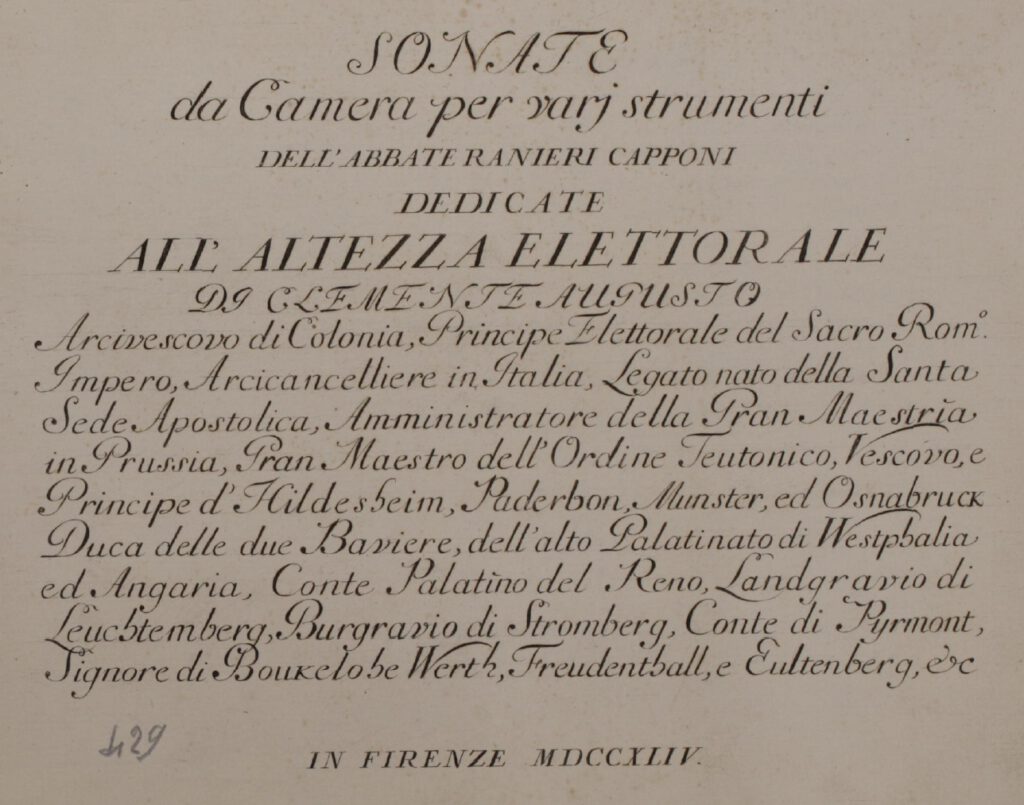 SONATE
da Camera per varj strumenti
DELL'ABBATE RANIERI CAPPONI
DEDICATE
ALL' ALTEZZA ELETTORALE
DI CLEMENTE AUGUSTO
Arcivescovo di Colonia, Principe Elettorale del Sacro Rom.º
Impero, Arcicancelliere in Italia, Legato nato della Santa
Sede Apostolica, Amministratore della Gran Maestrìa
in Prussia, Gran Maestro dell'Ordine Teutonico, Vescovo, e
Principe d'Hildesheim, Paderbon, Munster, ed Osnabruck
Duca delle due Baviere, dell'alto Palatinato di Westphalia
ed Angaria, Conte Palatino del Reno, Landgravio di
Leuchtemberg, Burgravio di Stromberg, Conte di Pyrmont,
Signore di Boukelohe Werth, Freudenthall, e Eultenberg, &c
429
IN FIRENZE MDCCXLIV.